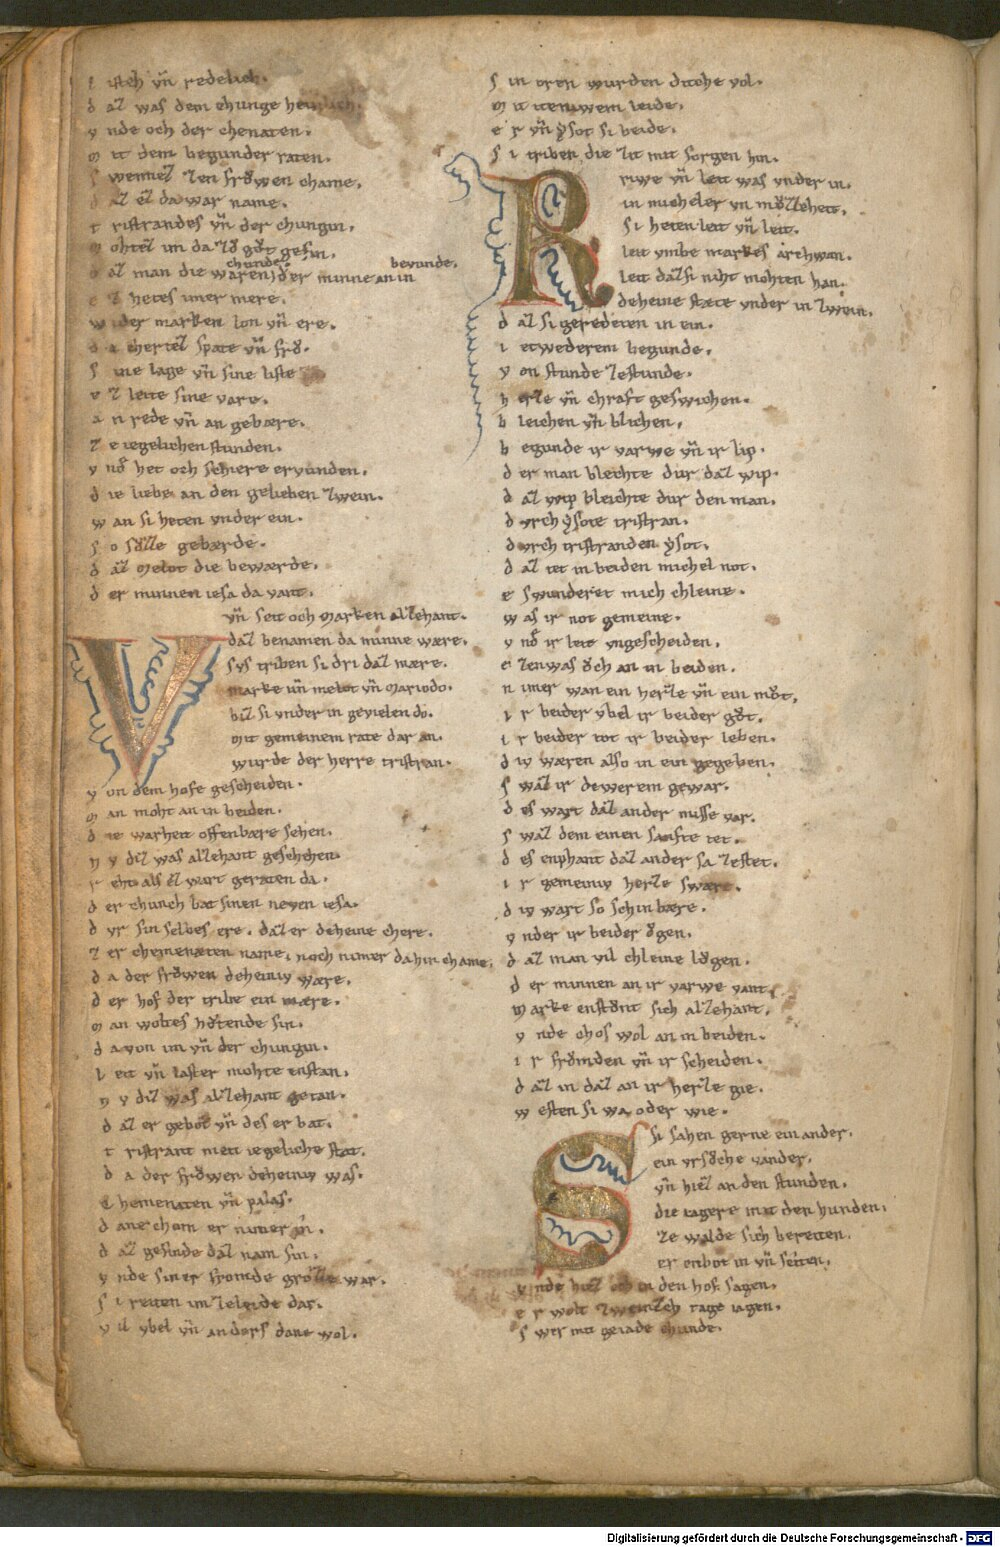 l isteh vn̄ redelich.
d az was dem chunge heinlich.
v nde och der chenaten.
m it dem begunder raten.
s wennez zen froͮwen chame.
d az ez da war name.
t ristrandes vn̄ der chungin.
m ohtez im da zoͮ goͮt gesin.
chunde. bevunde.
o az man die waren, der minne an in
e z hetes imer mere.
w ider marken lon vn̄ ere.
d a chertez spate vn̄ froͮ.
s ine lage vn̄ sine liste
v z leite sine vare.
a n rede vn̄ an gebære.
z e iegelichen stunden.
v noͮ het och schiere ervunden.
d ie liebe an den gelieben zwein.
w an si heten vnder ein.
s o soͮzze gebærde.
d az Melot die bewærde.
d er minnen iesa da vant.
V vn̄ seit och Marken alzehant.
daz benamen da minne wære.
svs triben si dri daz mære.
marke vn̄ melot vn̄ Mariodo.
biz si vnder in gevielen do.
Mit gemeinem rate dar an.
wurde der herre tristran.
v on dem hofe gescheiden.
m an moht an in beiden.
d ie warheit offenbære sehen.
n v diz was alzehant geschehen.
r eht als ez wart geraten da.
d er chunch bat sinen neven iesa.
d vr sin selbes ere. daz er deheine chere.
z er chemenaten name, noch nimer dahin chame.
d a der froͮwen deheiniv wære.
d er hof der tribe ein mære.
m an woltes hoͮtende sin.
d a von im vn̄ der chungin.
l eit vn̄ laster mohte enstan.
n v diz was alzehant getan.
d az er gebot vn̄ des er bat.
t ristrant meit iegeliche stat.
d a der froͮwen deheiniv was.
C hemenaten vn̄ palas.
d ane chom er nimer in.
d az gesinde daz nam sin.
v nde siner fromde grozze war.
s i reiten im ze leide dar.
v il vbel vn̄ anders dane wol.
s in oren wurden dicche vol.
m it iteniwem leide.
e r vn̄ ẏsot si beide.
s i triben die zit mit sorgen hin.
R riwe vn̄ leit was vnder in.
in micheler vn moͮzeheit.
si heten leit vn̄ leit.
leit vmbe markes archwan.
leit dazsi niht mohten han.
deheine stæte vnder in zwein.
d az si geredeten in ein.
i etwederem begunde.
v on stunde ze stunde.
h erze vn̄ chraft geswichen.
b leichen vn̄ blichen.
b egunde ir varwe vn̄ ir lip.
d er man bleichte dur daz wip.
d az wip bleichte dur den man.
d vrch ẏsote tristran.
d vrch tristranden ẏsot.
d az tet in beiden michel not.
e swunderet mich chleine.
w as ir not gemeine.
v noͮ ir leit vngescheiden.
e zen was oͮch an in beiden.
n imer wan ein herze vn̄ ein moͮt.
i r beider vbel ir beider goͮt.
i r beider tot ir beider leben.
d iv wæren also in ein gegeben.
s waz ir dewerem gewar.
d es wart daz ander misse var.
s waz dem einen sanfte tet.
d es enphant daz ander sa zestet.
i r gemeiniv herze swære.
d iv wart so schinbære.
v nder ir beider oͮgen.
d az man vil chleine loͮgen.
d er minnen an ir varwe vant.
marke enstoͮnt sich alzehant.
v nde chos wol an in beiden.
i r froͮmden vn̄ ir scheiden.
d az in daz an ir herze gie.
w esten si wa oder wie.
S si sahen gerne ein ander.
ein vrsoͮche vander.
vn̄ hiez an den stunden.
die iagere mit den hunden.
ze walde sich bereiten.
er enbot in vn̄ seiten.
v nde hiez och in den hof sagen.
e r wolt zweinzch tage iagen.
s wer mit geiade chunde.
Digitalisierung gefördert durch die Deutsche Forschungsgemeinschaft - DFG